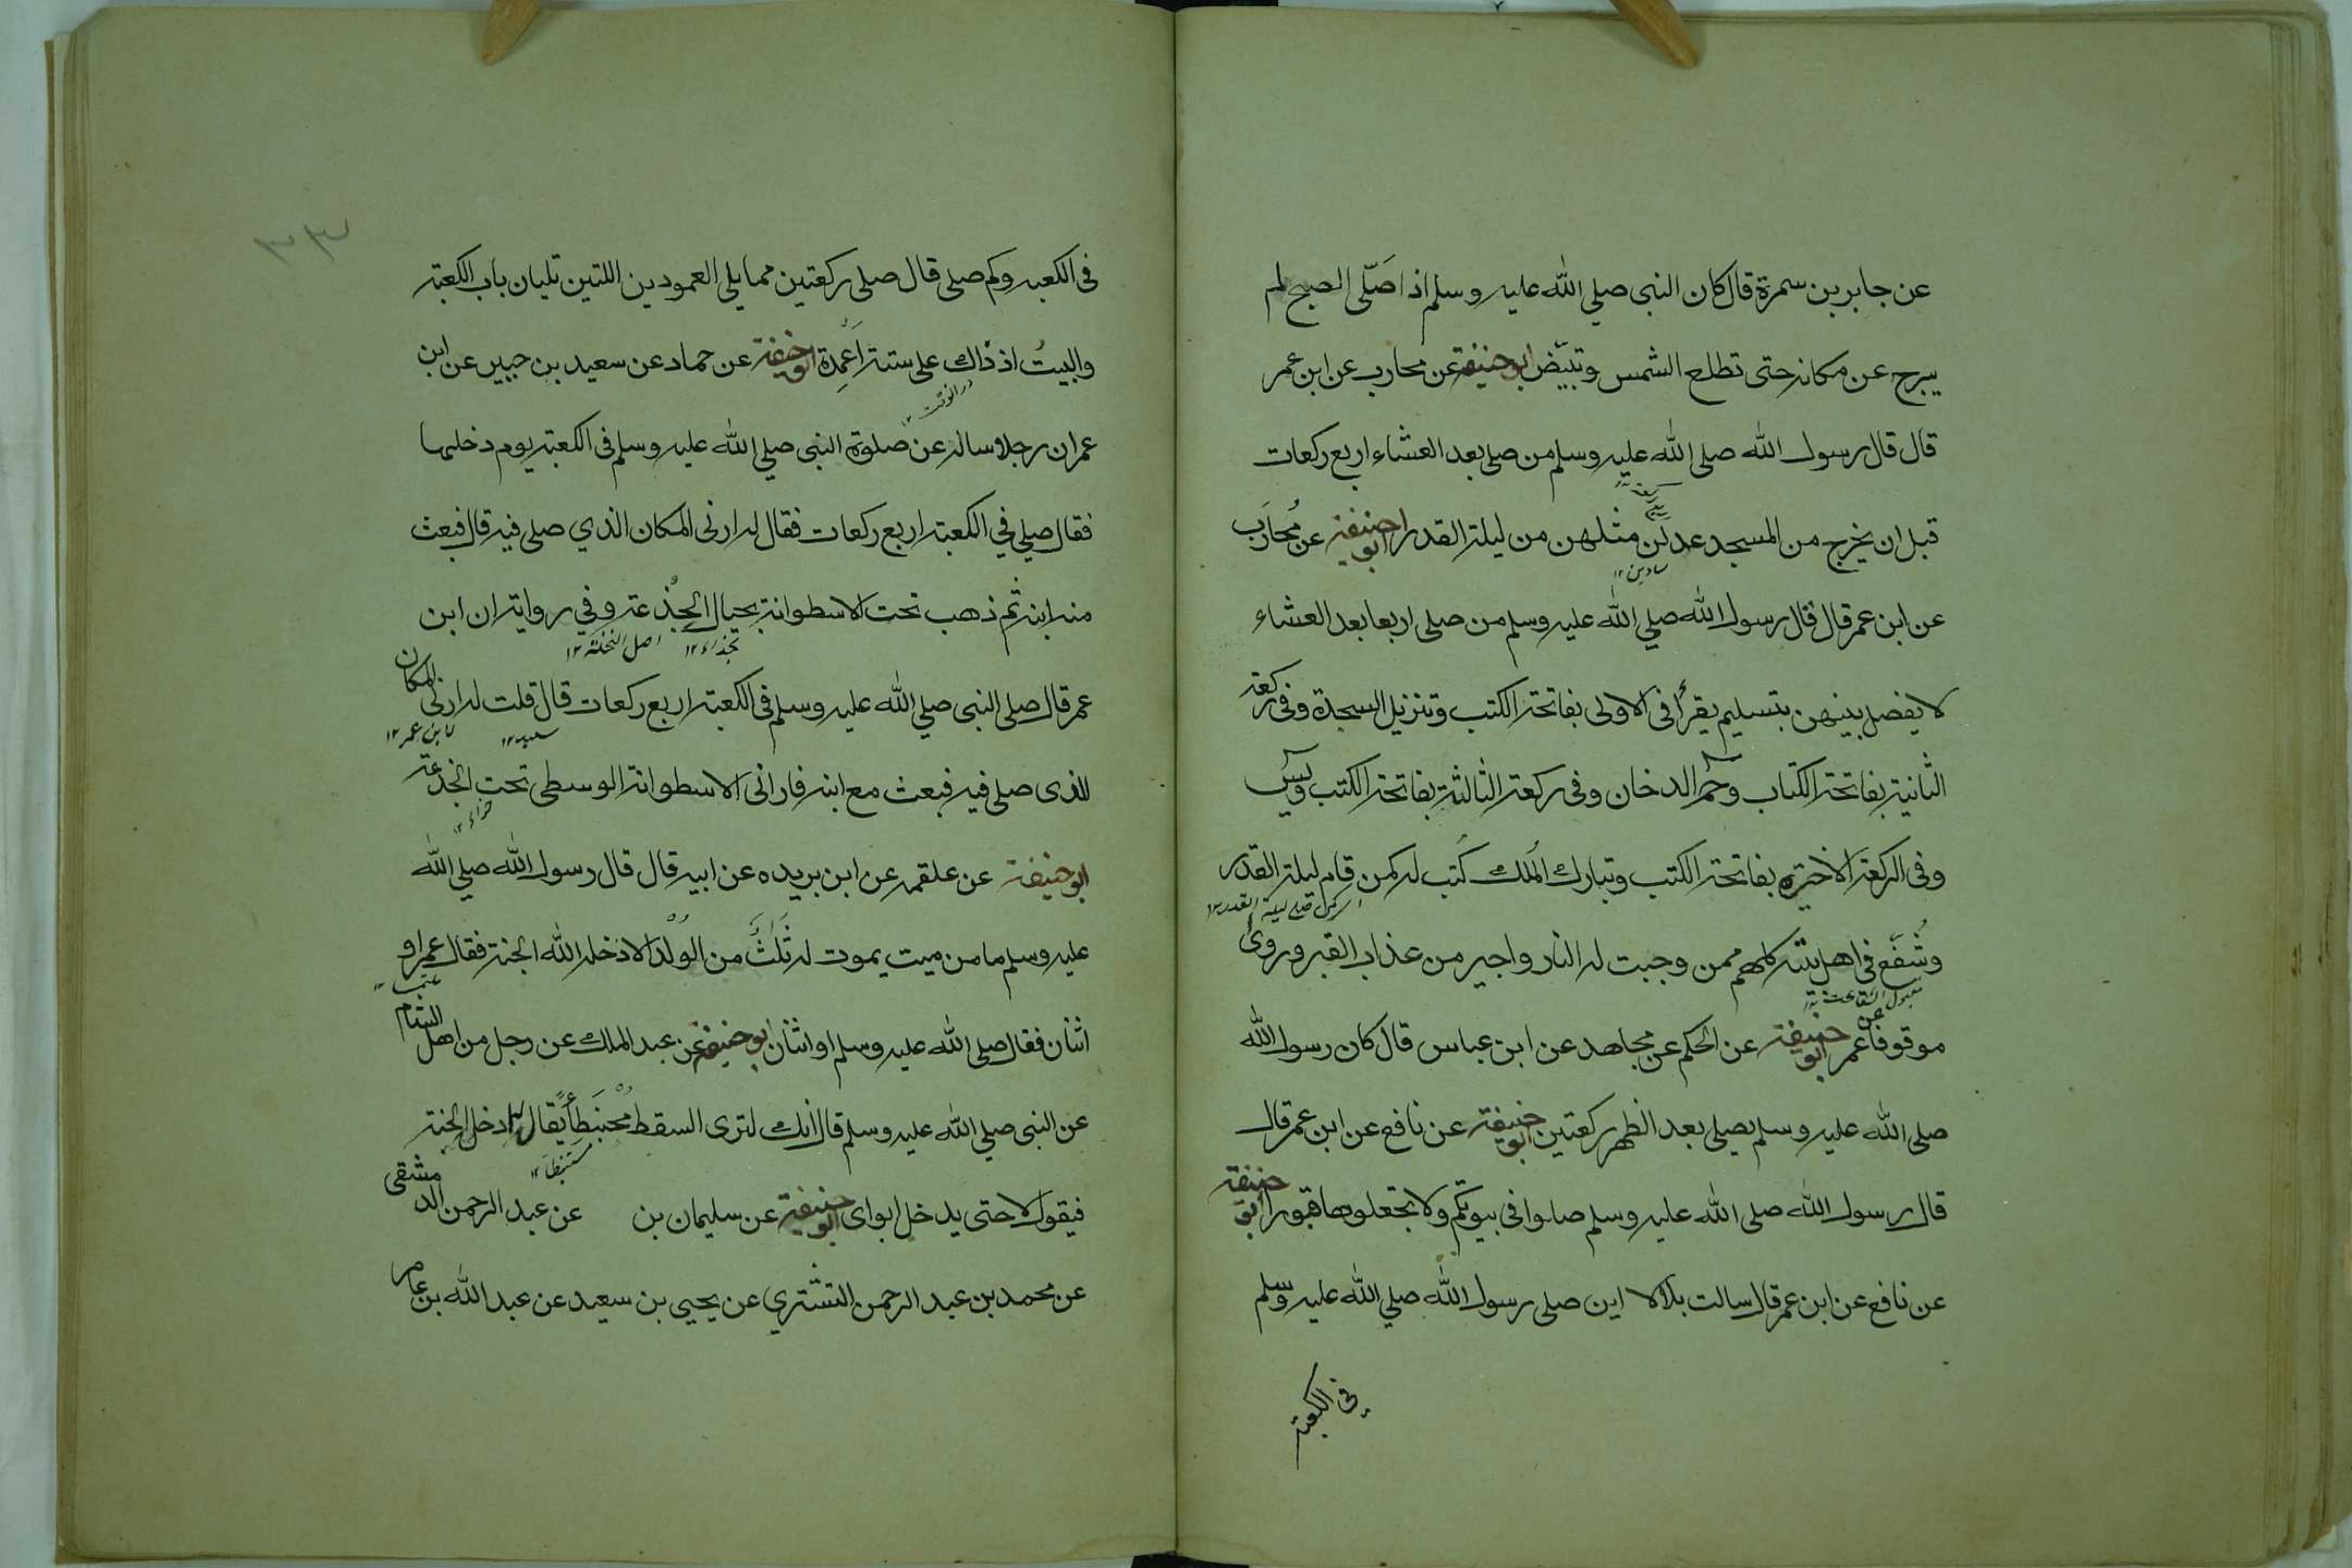 عن جابر بن سمرة قال كان النبى صلي الله عليه وسلم اذا صَلّى الصبح لم
يبرح عن مكانه حتى تطلع الشمس وتبيّض ابو حنيفة عن محارب عن ابن عمر
قال قال رسول الله صلى الله عليه وسلم من صلى بعد العشاء اربع ركعات
قبل ان يخرج من المسجد عدلن مثلهن من ليلة القدر ابو حنيفة عن مُحارب
عن ابن عمر قال قال رسول الله صلي الله عليه وسلم من صلى اربعا بعد العشاء
لا يفصل بينهن بتسليم يقرأ فى الاولى بفاتحة الكتب وتنزيل السجدة وفى ركعة
الثانية بفاتحة الكتاب وحٰم الدخان وفى ركعة الثالثة بفاتحة الكتب ويٰس
وفى الركعة الاخيرة بفاتحة الكتب وتبارك الملك كُتب له كمن قام ليلة القدر
وشُفّع فى اهل بيته كلهم ممن وجبت له النار واجير من عذاب القبر وروى
مقبول الشفاعت
موقوفا عن عمر ابو حنيفة عن الحكم عن مجاهد عن ابن عباس قال كان رسول الله
صلى الله عليه وسلم يصلى بعد الظهر ركعتين ابو حنيفة عن نافع عن ابن عمر قال
قال رسول الله صلى الله عليه وسلم صلوا فى بيوتكم ولا تجعلوها قبورا ابو حنيفة
عن نافع عن ابن عمر قال سالت بلالا اين صلى رسول الله صلي الله عليه وسلم
فى الكعبة
٣٣
فى الكعبه وكم صلى قال صلى ركعتين مما يلى العمودين اللتين تليان باب الكعبة
والبيتُ اذ ذاك على ستة اَعْمِدة ابو حنيفة عن حماد عن سعيد بن جبير عن ابن
در الوقت ١٢
عمر ان رجلا ساله عن صلوة النبى صلي الله عليه وسلم فى الكعبة يوم دخلها
فقال صلي في الكعبة اربع ركعات فقال له ارنى المكان الذي صلى فيه قال فبعث
معه ابنه ثم ذهب تحت الاسطوانة بحيال الجذعة وفي رواية ان ابن
بحذاء ١٢ اصل النخلة ١٢
عمر قال صلى النبى صلي الله عليه وسلم فى الكعبة اربع ركعات قال قلت له ارنى المكان
سعيد ١٢ لابن عمر ١٢
الذى صلى فيه فبعث مع ابنه فارانى الاسطوانة الوسطى تحت الجذعة
ابو حنيفة عن علقمه عن ابن بريده عن ابيه قال قال رسول الله صلي الله
عليه وسلم ما من ميت يموت له ثَلٰثٌ من الوُلْد الا ادخله الله الجنة فقال عمر او
اثنان فقال صلى الله عليه وسلم او اثنان ابو حنيفة عن عبد الملك عن رجل من اهل الشام
عن النبى صلي الله عليه وسلم قال انك لترى السقط مُحْبَنْطِأً يقال له ادخل الجنة
فيقول لا حتى يدخل ابواى ابو حنيفة عن سليمان بن عن عبد الرحمن الدمشقى
عن محمد بن عبد الرحمن التشتري عن يحيى بن سعيد عن عبد الله بن عامر